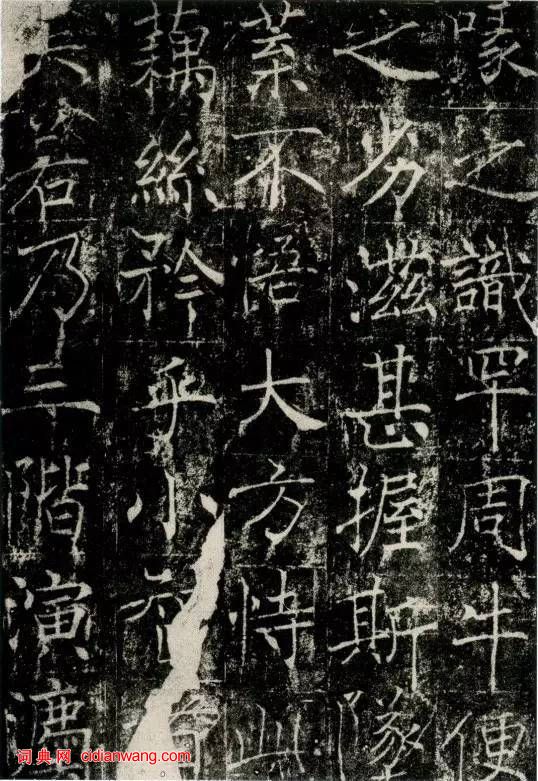 喙之識罕周牛便
之劣滋甚握斯燧
菜不悟大方恃此
藕絲矜乎小智
矣若乃三階演灋
词典网 cidianwang.com